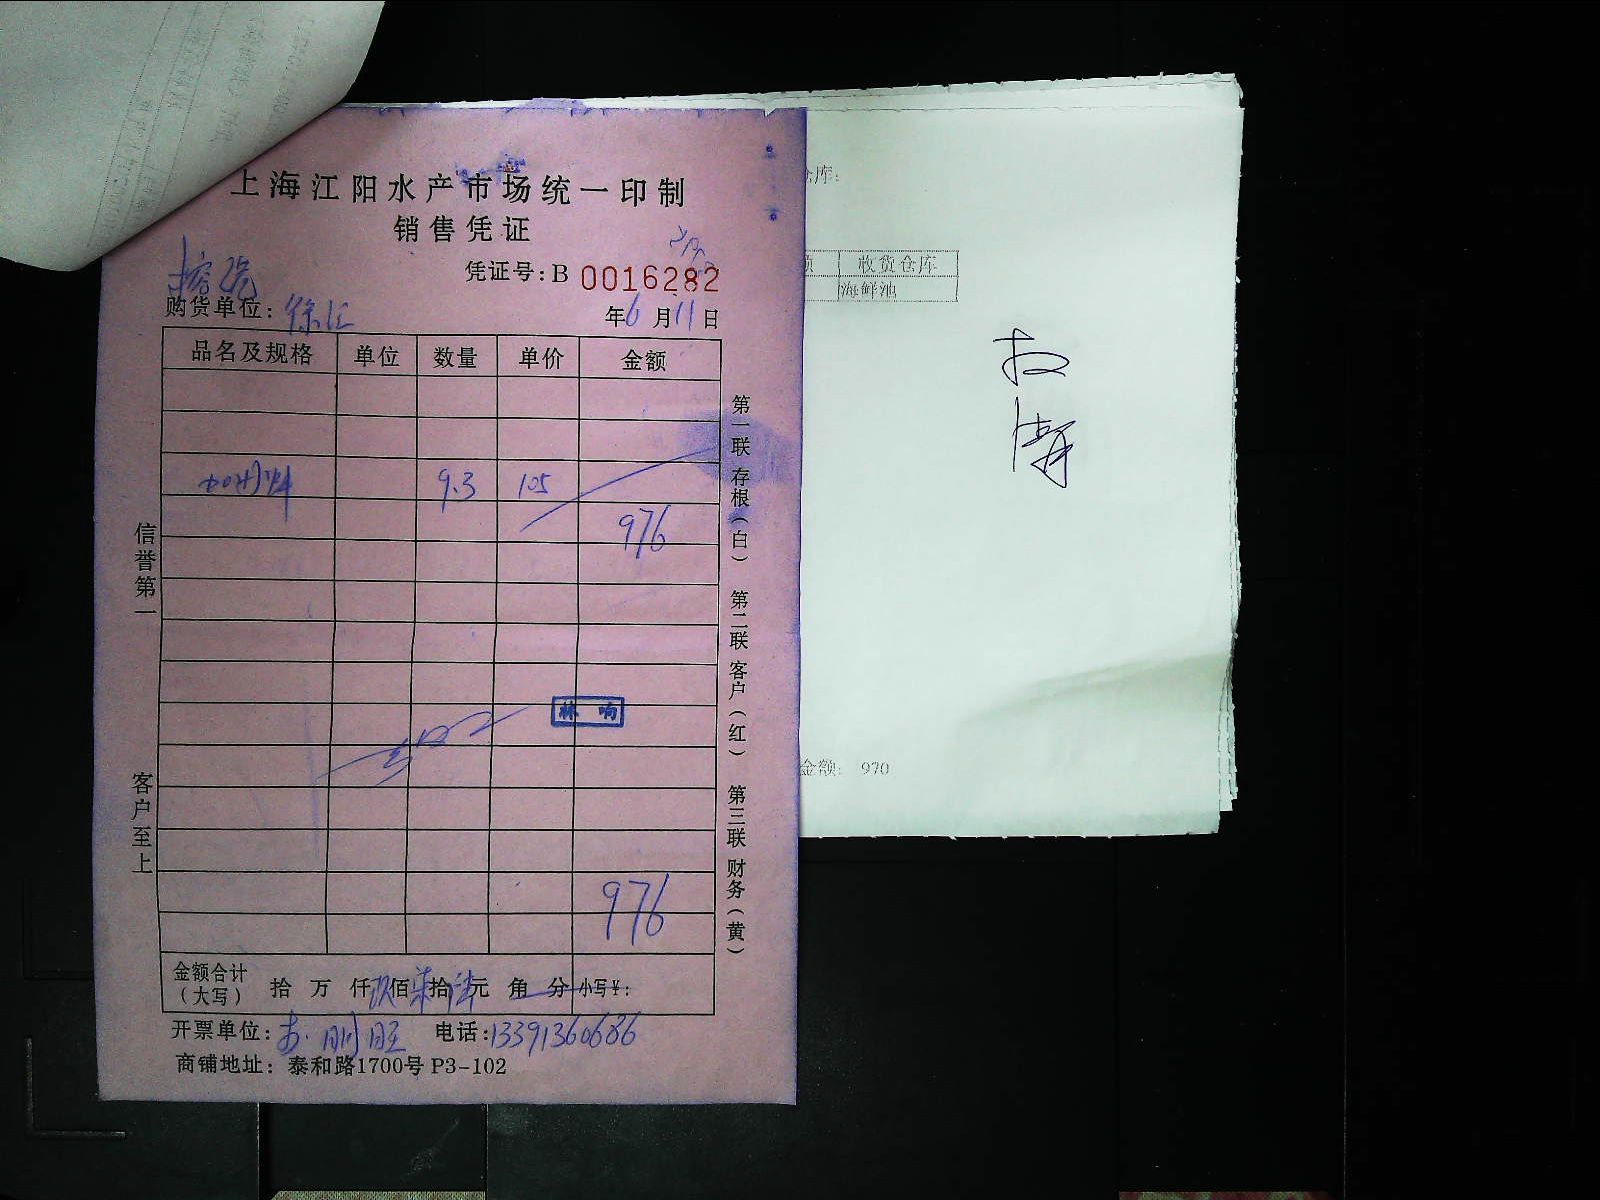 上海江阳水产市场统一印制
销售凭证
凭证号:B 0016282
购货单位: 徐汇
年6月11日
品名及规格 单位 数量 单价 金额
9.3 105
976
林 响
976
金额合计(大写) 拾 万 仟玖佰柒拾陆元 角 分 小写¥:
开票单位: 电话:13391360686
商铺地址: 泰和路1700号 P3-102
信誉第一
客户至上
第一联 存根(白) 第二联 客户(红) 第三联 财务(黄)
库:
收货仓库
海鲜池
金额: 970